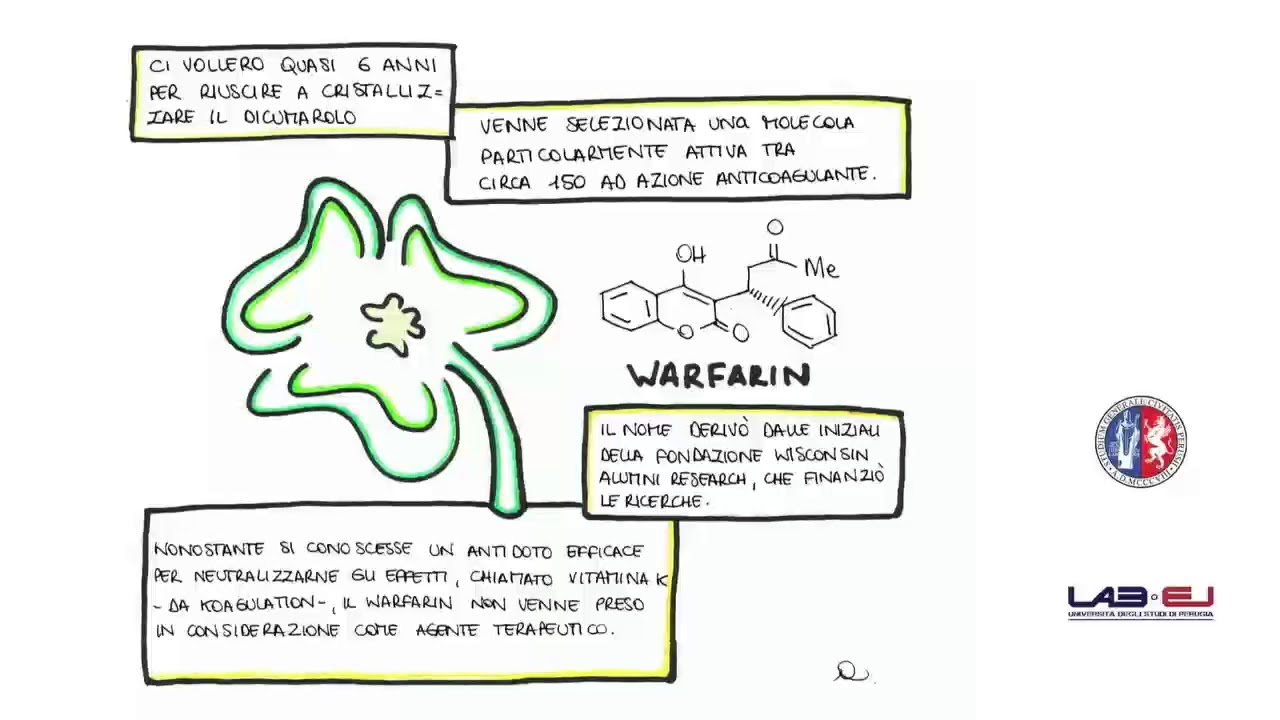 CI VOLLERO QUASI 6 ANNI
PER RIUSCIRE A CRISTALLIZ=
ZARE IL DICUMAROLO
VENNE SELEZIONATA UNA MOLECOLA
PARTICOLARMENTE ATTIVA TRA
CIRCA 150 AD AZIONE ANTICOAGULANTE.
O
OH
Me
O
O
WARFARIN
IL NOME DERIVÒ DALLE INIZIALI
DELLA FONDAZIONE WISCONSIN
ALUMNI RESEARCH, CHE FINANZIÒ
LE RICERCHE.
NONOSTANTE SI CONOSCESSE UN ANTIDOTO EFFICACE
PER NEUTRALIZZARNE GLI EFFETTI, CHIAMATO VITAMINA K
- DA KOAGULATION-, IL WARFARIN NON VENNE PRESO
IN CONSIDERAZIONE COME AGENTE TERAPEUTICO.
STUDIUM GENERALE CIVITATIS PERUSII
A.D. MCCCVIII
LAB·EJ
UNIVERSITÀ DEGLI STUDI DI PERUGIA